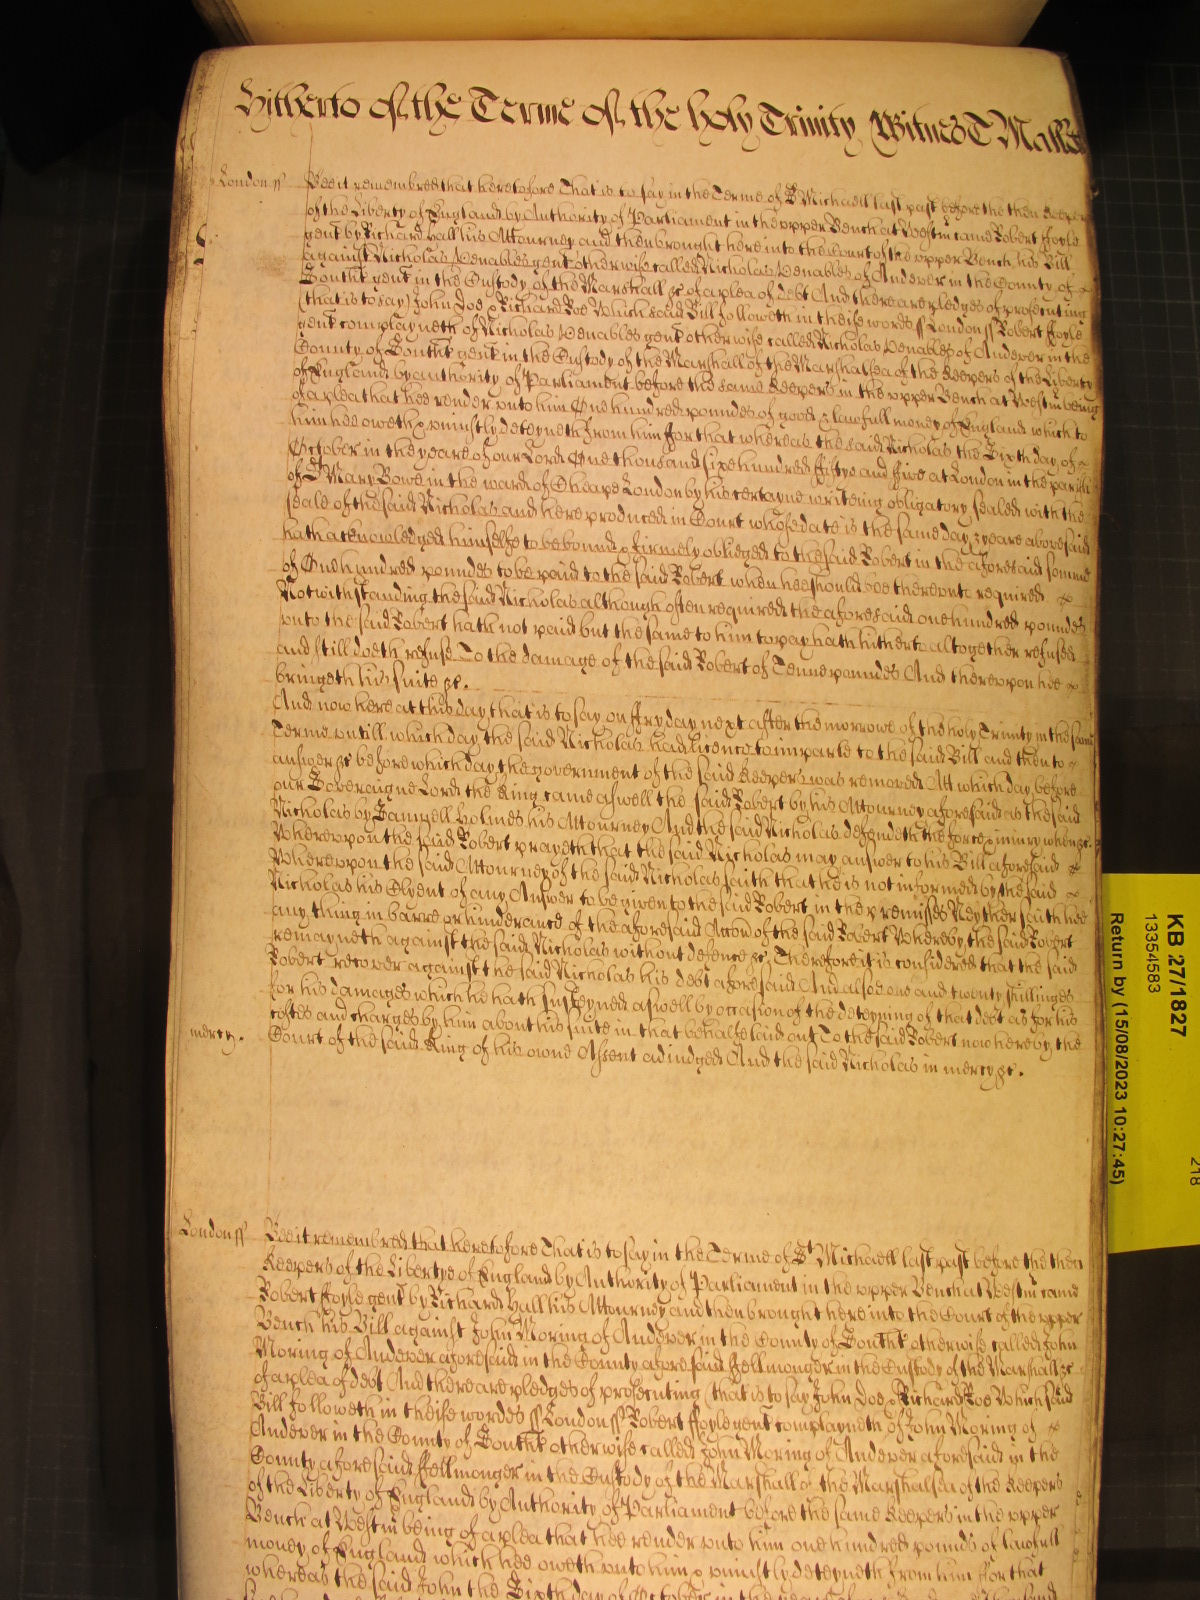 Hitherto of the Terme of the holy Trinity Witnes T Mallet
London ss Bee it remembred that heretofore That is to say in the Terme of St Michaell last past before the then Keepers
of the Liberty of England by Authority of Parliament in the vpper Bench at Westm came Robert ffoyle
gent by Richard Hall his Attourney and then brought here into the Court of the vpper Bench his Bill
against Nicholas Venables gent otherwise called Nicholas Venables of Andever in the County of
Southt gent in the Custody of the Marshall &c of a plea of debt And there are pledges of prosecuting
(that is to say) John Doe & Richard Roe Which said Bill followeth in theise words ss London ss Robert ffoyle
gent complayneth of Nicholas Venables gent otherwise called Nicholas Venables of Andever in the
County of Southt gent in the Custody of the Marshall of the Marshalsea of the Keepers of the Liberty
of England by authority of Parliament before the same Keepers in the vpper Bench at Westm being
of a plea that hee render vnto him One hundred poundes of good & lawfull money of England which to
him hee oweth & vniustly deteyneth from him for that whereas the said Nicholas the Sixth day of
October in the yeare of our Lord One thousand sixe hundred ffiftye and ffive at London in the parish
of St Mary Bowe in the ward of Cheape London by his certayne writeing obligatory sealed with the
seale of the said Nicholas and here produced in Court whose date is the same day & yeare abovesaid
hath acknowledged himselfe to be bound & firmely obliedged to the said Robert in the aforesaid somme
of One hundred poundes to be paid to the said Robert when hee should bee therevnto required
Notwithstanding the said Nicholas although often required the aforesaid one hundred poundes
vnto the said Robert hath not paid but the same to him to pay hath hitherto altogether refused
and still doeth refuse To the damage of the said Robert of Tenne poundes And therevpon hee
bringeth his suite &c.
And now here at this day that is to say on ffryday next after the morrowe of the holy Trinity in the same
Terme vntill which day the said Nicholas had licence to imparle to the said Bill and then to
answer &c before which day the government of the said Keepers was removed Att which day before
our Soveraigne Lord the King came aswell the said Robert by his Attourney aforesaid as the said
Nicholas by Samuell Holmes his Attourney And the said Nicholas defendeth the force & iniury when &c.
Wherevpon the said Robert prayeth that the said Nicholas may answer to his Bill aforesaid &c
Wherevpon the said Attourney of the said Nicholas saith that he is not informed by the said
Nicholas his Clyent of any Answer to be given to the said Robert in the premisses Neyther saith hee
any thing in barre or hinderance of the aforesaid Accon of the said Robert Whereby the said Robert
remayneth against the said Nicholas without defence &c. Therefore it is considered that the said
Robert recover against the said Nicholas his debt aforesaid And alsoe one and twenty shillinges
for his damages which he hath susteyned aswell by occasion of the deteyning of that debt as for his
costes and charges by him about his suite in that behalfe laid out To the said Robert now here by the
mercy. Court of the said King of his owne Assent adiudged And the said Nicholas in mercy &c.
London ss Bee it remembred that heretofore That is to say in the Terme of St Michaell last past before the then
Keepers of the Libertye of England by Authority of Parliament in the vpper Bench at Westm came
Robert ffoyle gent by Richard Hall his Attourney and then brought here into the Court of the vpper
Bench his Bill against John Moring of Andever in the County of Southt otherwise called John
Moring of Andever aforesaid in the County aforesaid ffellmonger in the Custody of the Marshall &c
of a plea of debt And there are pledges of prosecuting (that is to say John Doe & Richard Roe Which said
Bill followeth in theise wordes ss London ss Robert ffoyle gent complayneth of John Moring of
Andever in the County of Southt otherwise called John Moring of Andever aforesaid in the
County aforesaid ffellmonger in the Custody of the Marshall of the Marshalsea of the Keepers
of the Liberty of England by Authority of Parliament before the same Keepers in the vpper
Bench at Westm being of a plea that hee render vnto him one hundred pounds of lawfull
money of England which hee oweth vnto him & vniustly deteyneth from him ffor that
whereas the said John the Sixth day of October in the yeare
KB 27/1827
13354583
Return by (15/08/2023 10:27:45)
218